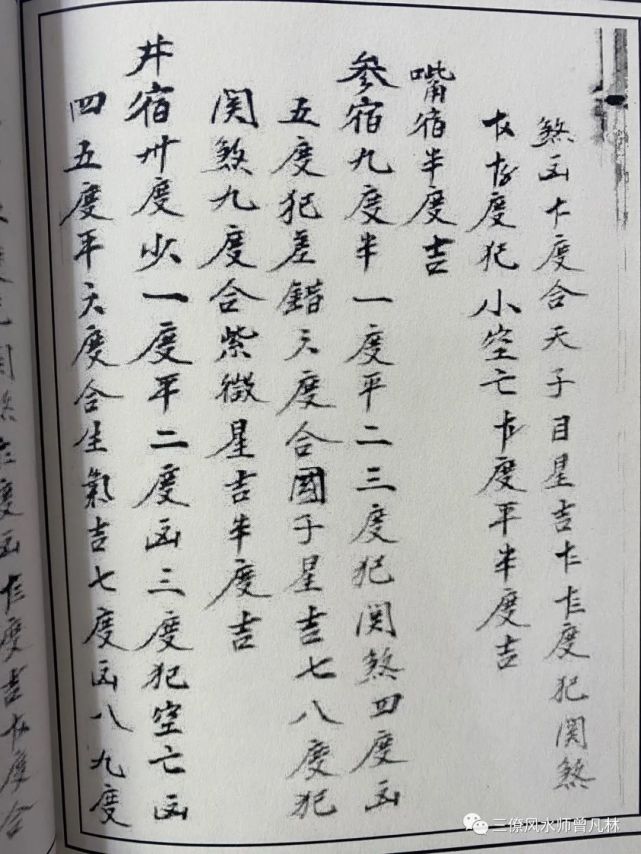 煞凶度合天子目星吉度犯関煞
度犯小空亡度平半度吉
嘴宿半度吉
参宿九度半一度平二三度犯関煞四度凶
五度犯差錯六度合國子星吉七八度犯
関煞九度合紫微星吉半度吉
井宿卅度少一度平二度凶三度犯空亡凶
四五度平六度合生氣吉七度凶八九度
度凶度吉度合
三僚风水师曾凡林